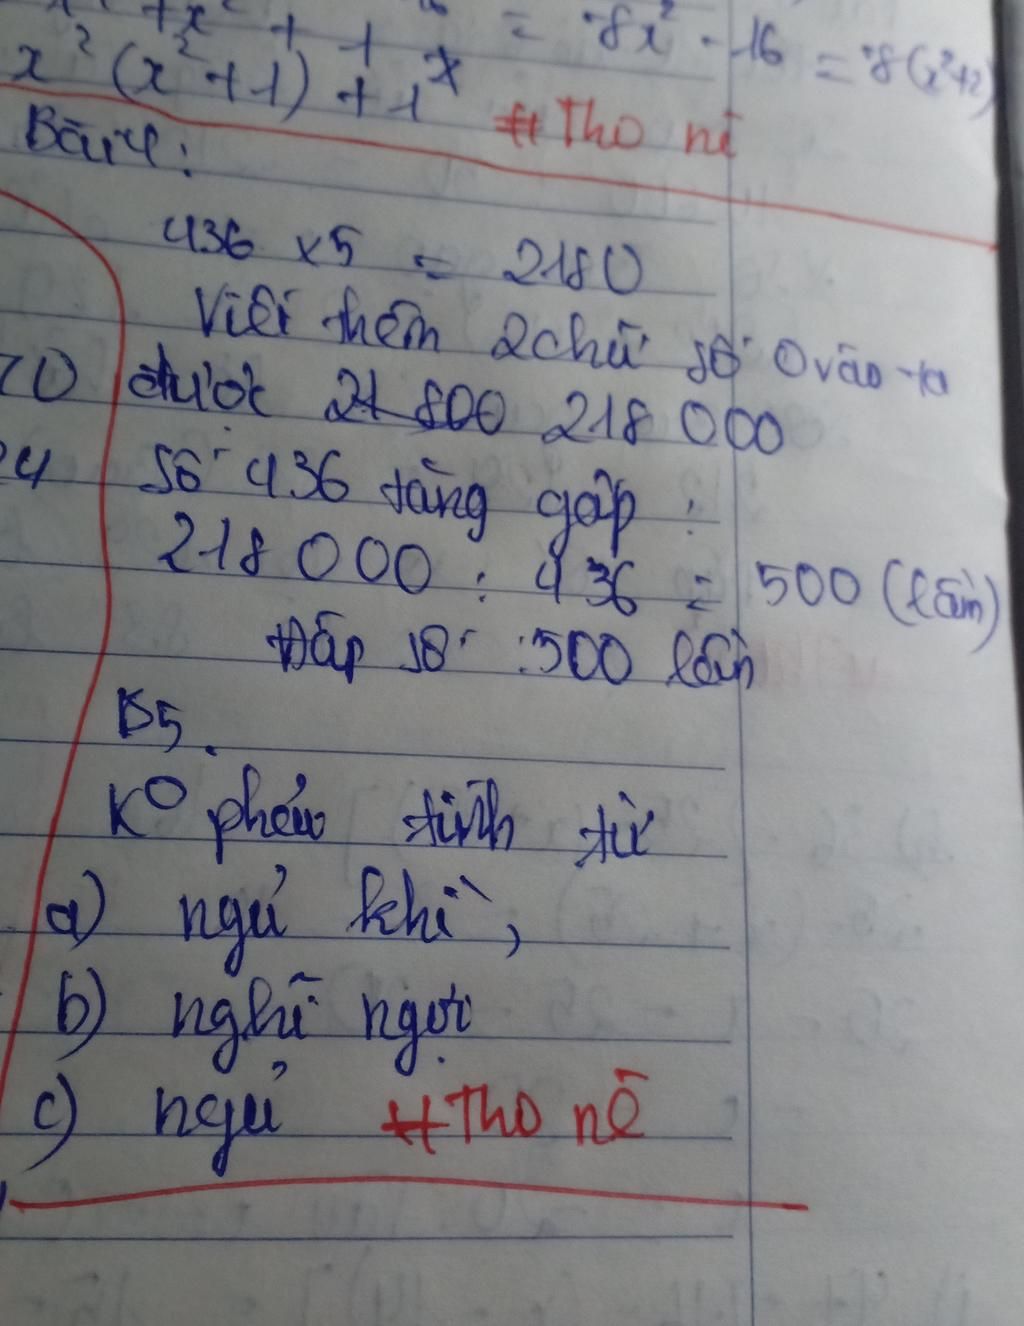 = -8x² - 16 = -8(x²+2)
x²(x²+1)+1
#Tho nè
Bài 4:
436 x5 = 2180
Viết thêm 2 chữ số 0 vào ta
được 21 800 218 000
24 Số 436 tăng gấp :
218 000 : 436 = 500 (lần)
Đáp số : 500 lần
B5.
K⁰ phép tính từ
a) ngủ khì,
b) nghĩ ngợi
c) ngủ #Tho nè